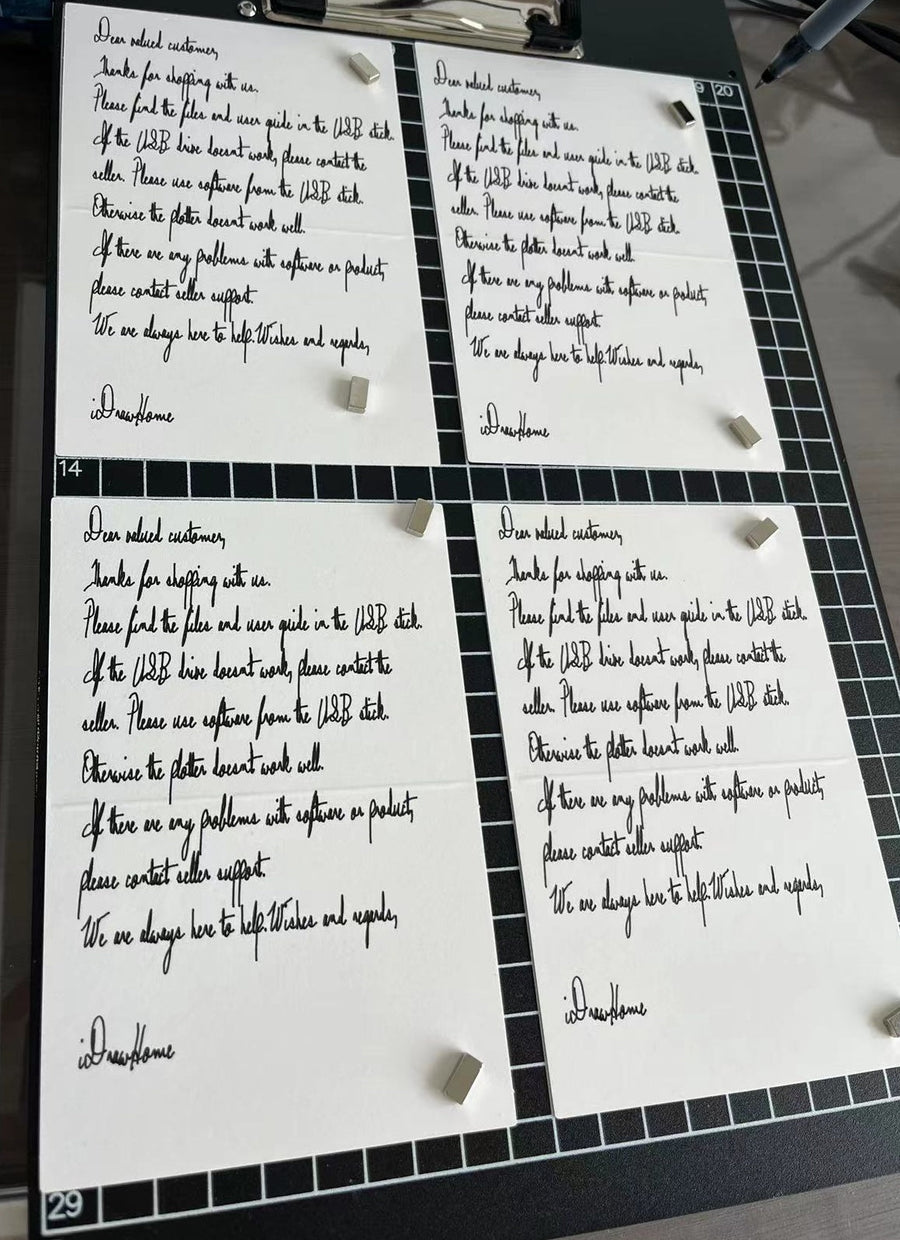 Dear valued customer,
Thanks for shopping with us.
Please find the files and user guide in the USB stick.
If the USB drive doesnt work, please contact the
seller. Please use software from the USB stick.
Otherwise the plotter doesnt work well.
If there are any problems with software or product,
please contact seller support.
We are always here to help.Wishes and regards,
iDrawHome
Dear valued customer,
Thanks for shopping with us.
Please find the files and user guide in the USB stick.
If the USB drive doesnt work, please contact the
seller. Please use software from the USB stick.
Otherwise the plotter doesnt work well.
If there are any problems with software or product,
please contact seller support.
We are always here to help.Wishes and regards,
iDrawHome
9 20
14
Dear valued customer,
Thanks for shopping with us.
Please find the files and user guide in the USB stick.
If the USB drive doesnt work, please contact the
seller. Please use software from the USB stick.
Otherwise the plotter doesnt work well.
If there are any problems with software or product,
please contact seller support.
We are always here to help.Wishes and regards,
iDrawHome
Dear valued customer,
Thanks for shopping with us.
Please find the files and user guide in the USB stick.
If the USB drive doesnt work, please contact the
seller. Please use software from the USB stick.
Otherwise the plotter doesnt work well.
If there are any problems with software or product,
please contact seller support.
We are always here to help.Wishes and regards,
iDrawHome
29